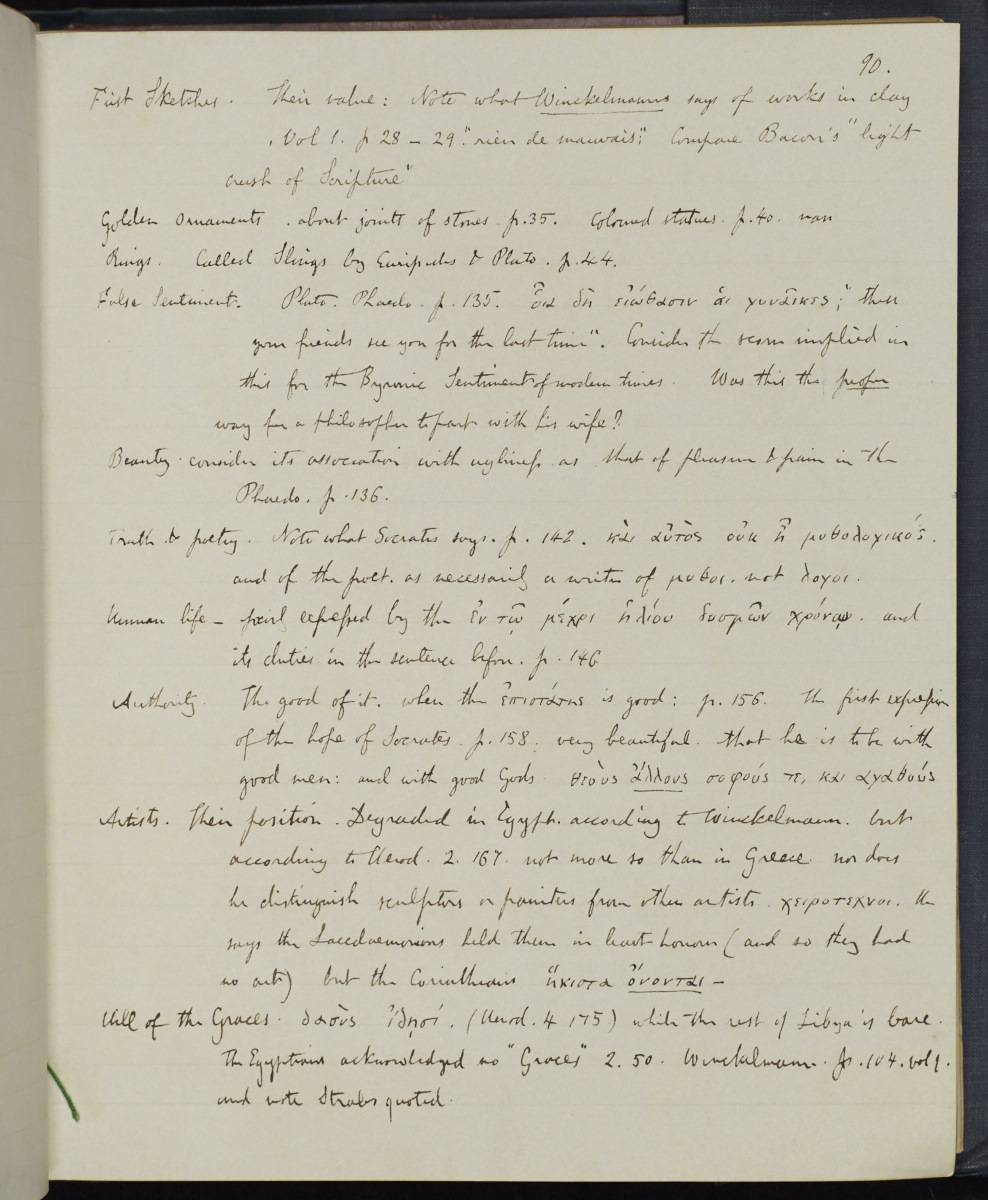 90.
First Sketches. Their value: Note what Winckelmann says of works in clay
. Vol 1. p 28 – 29. "rien de mauvais": Compare Bacon's "light
crush of Scripture"
Golden ornaments . about joints of stones. p. 35. Coloured statues. p. 40.
Rings. Called Slings by Euripides & Plato. p. 44.
False Sentiment. Plato. Phaedo. p. 135. οἷα δὴ εἰώθασιν αἱ γυναῖκες; "then
your friends see you for the last time". Consider the scorn implied in
this for the Byronic Sentiment of modern times. Was this the proper
way for a philosopher to part with his wife?
Beauty. consider its association with ugliness as that of pleasure & pain in the
Phaedo. p. 136.
Truth & poetry. Note what Socrates says. p. 142. καὶ αὐτὸς οὐκ ἦ μυθολογικός.
and of the poet. as necessarily a writer of μυθοι. not λογοι.
Human life – expressed by the ἐν τῷ μέχρι ἡλίου δυσμῶν χρόνῳ. and
its duties in the sentence before. p. 146
Authority. The good of it. when the ἐπιστάτης is good: p. 156. The first expression
of the hope of Socrates. p. 158. very beautiful. that he is to be with
good men: and with good Gods. θεοὺς ἄλλους σοφούς τε, και αγαθούς
Artists. Their position. Degraded in Egypt. according to Winckelmann. but
according to Herod. 2. 167. not more so than in Greece. nor does
he distinguish sculptors or painters from other artists. χειροτεχνοι. He
says the Lacedaemonians held them in least honour (and so they had
no art) but the Corinthians "ἥκιστα ὄνονται –
Hill of the Graces. δασὺς ἴδῃσι. (Herod. 4 175) while the rest of Libya is bare.
The Egyptians acknowledged no "Graces" 2. 50. Winckelmann. p. 104. vol 1.
and note Strabo quoted.